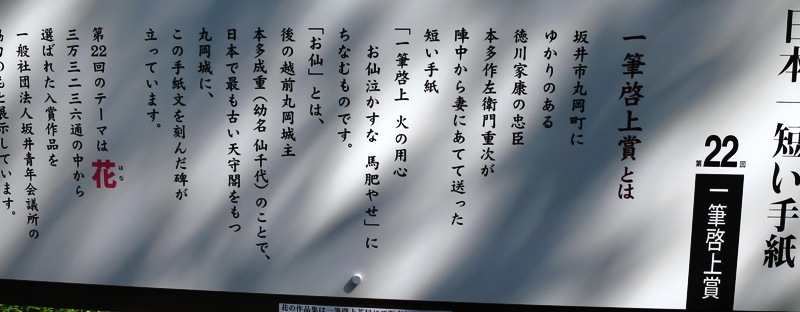 日本一短い手紙
第22回
一筆啓上賞
一筆啓上賞とは
坂井市丸岡町に
ゆかりのある
徳川家康の忠臣
本多作左衛門重次が
陣中から妻にあてて送った
短い手紙
「一筆啓上 火の用心
お仙泣かすな 馬肥やせ」に
ちなむものです。
「お仙」とは、
後の越前丸岡城主
本多成重（幼名 仙千代）のことで、
日本で最も古い天守閣をもつ
丸岡城に、
この手紙文を刻んだ碑が
立っています。
第22回のテーマは 花 はな
三万三二三六通の中から
選ばれた入賞作品を
一般社団法人坂井青年会議所の
のもと展示しています。
花の作品集は一筆啓上